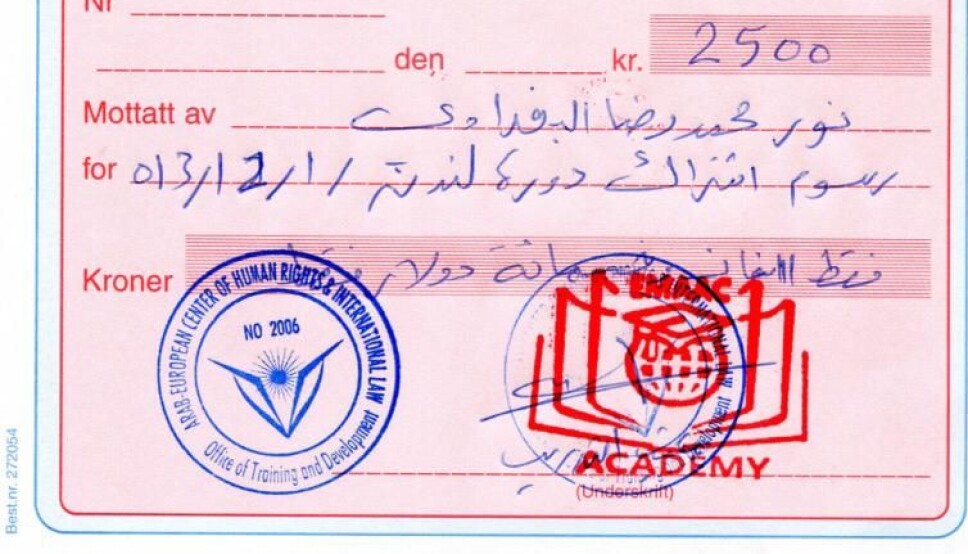 Nr
den kr. 2500
Mottatt av نور محمد رضا البغدادي
for رسوم اشتراك دورة لندن
Kroner فقط الفان مائة دولار فقط
ARAB-EUROPEAN CENTER OF HUMAN RIGHTS & INTERNATIONAL LAW
NO 2006
Office of Training and Development
INTERNATIONAL LAW
Development
ACADEMY
(Underskrift)
Best.nr. 272054